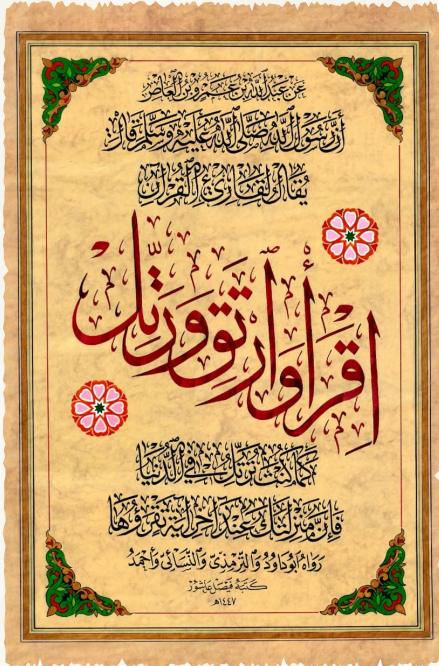 عَنْ عَبْدِ اللّٰهِ بْنِ عَمْرِو بْنِ الْعَاصِ
أَنَّ رَسُولَ اللّٰهِ صَلَّى اللّٰهُ عَلَيْهِ وَسَلَّمَ قَالَ
يُقَالُ لِقَارِئِ الْقُرْآنِ
اِقْرَأْ وَارْتَقِ وَرَتِّلْ
كَمَا كُنْتَ تُرَتِّلُ فِي الدُّنْيَا
فَإِنَّ مَنْزِلَتَكَ عِنْدَ آخِرِ آيَةٍ تَقْرَؤُهَا
رَوَاهُ أَبُو دَاوُد وَالتِّرْمِذِيّ وَالنَّسَائِيّ وَأَحْمَدُ
كتبه فيصل عاشور
١٤٤٧هـ